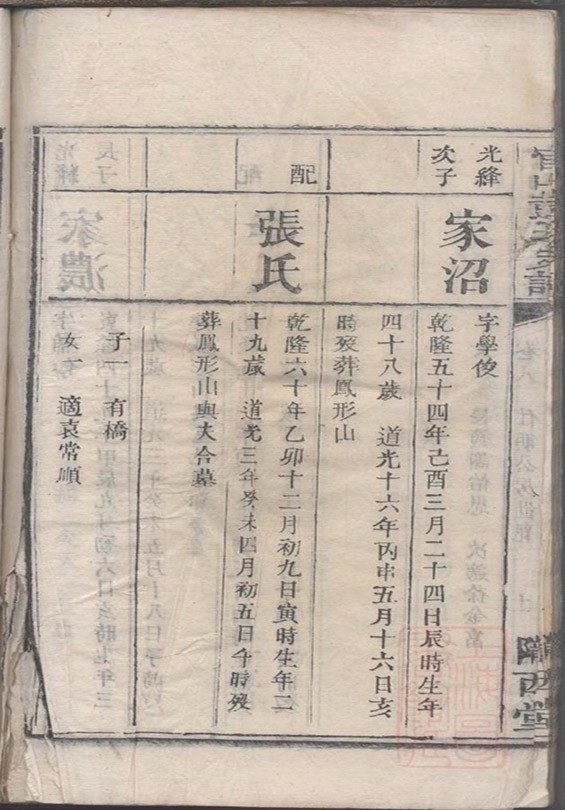 隴西堂
光絳
次子
家沼
字學俊
乾隆五十四年己酉三月二十四日辰時生年
四十八歲　道光十六年丙申五月十六日亥
時歿葬鳳形山
配
張氏
乾隆六十年乙卯十二月初九日寅時生年二
十九歲　道光三年癸未四月初五日午時歿
葬鳳形山與夫合墓
子一　有橋
女一　適袁常順